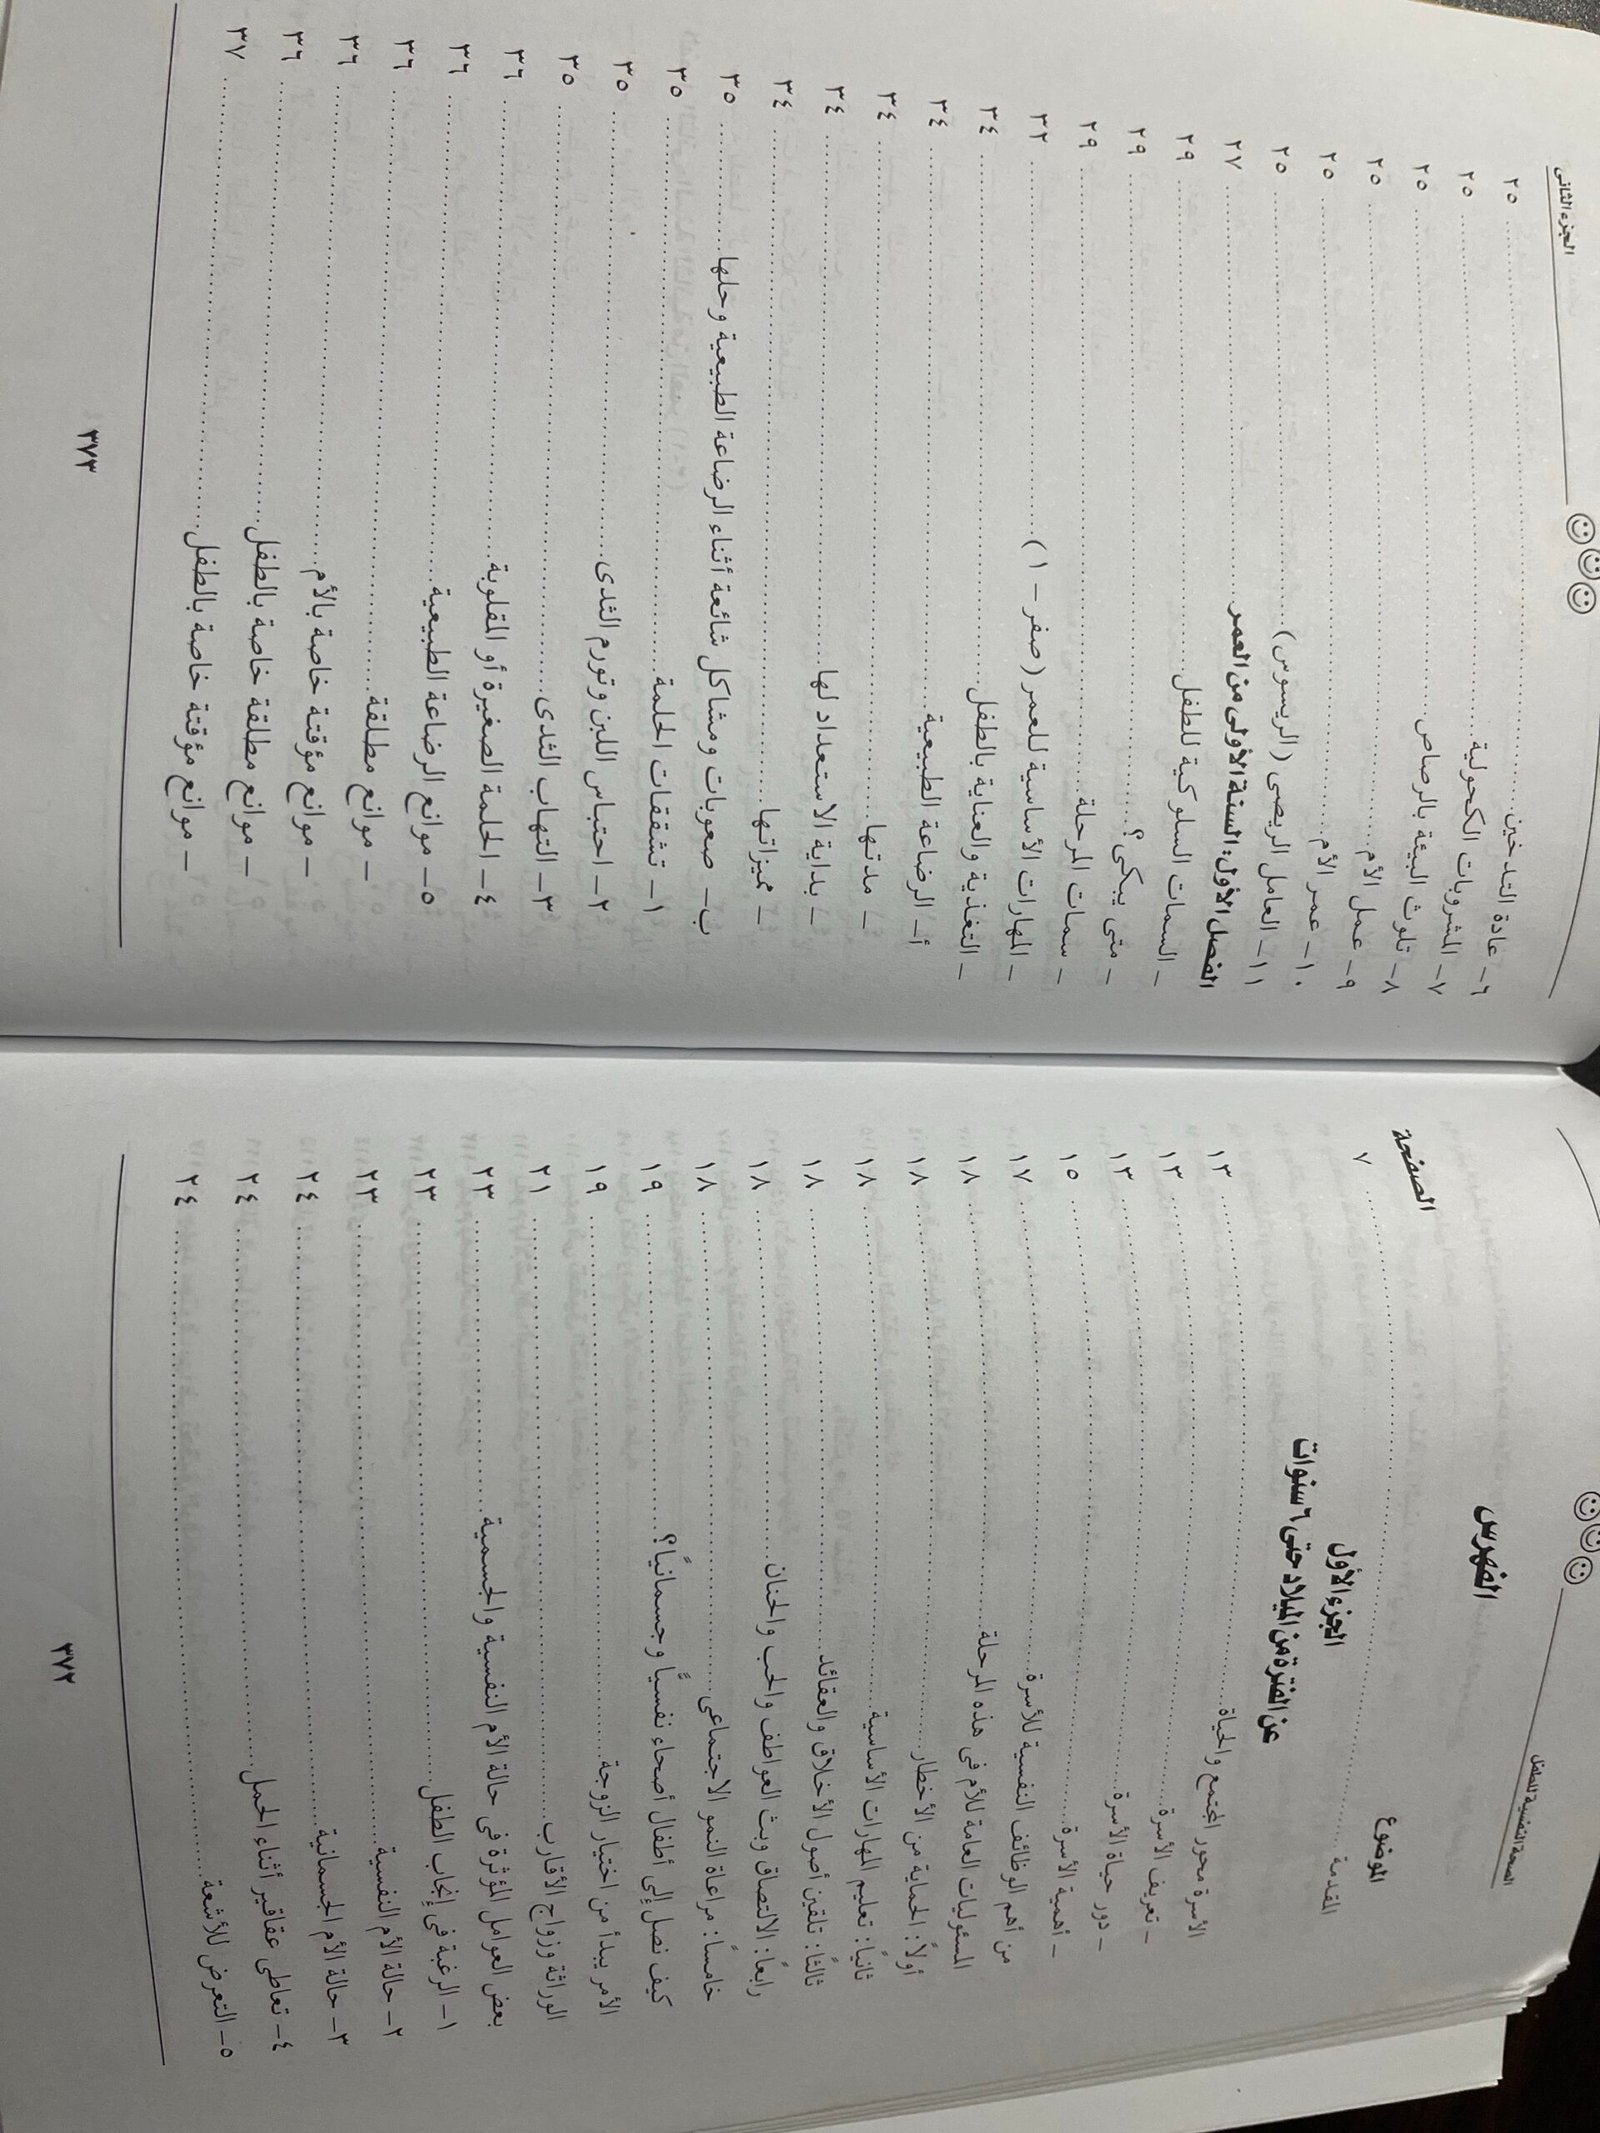 الصحة النفسية للطفل
الفهرس
الموضوع الصفحة
المقدمة ٧
الجزء الأول
عن الفترة من الميلاد حتى ٦ سنوات
الأسرة محور المجتمع والحياة ١٣
– تعريف الأسرة ١٣
– دور حياة الأسرة ١٣
– أهمية الأسرة ١٥
من أهم الوظائف النفسية للأسرة ١٧
المسئوليات العامة للأم فى هذه المرحلة ١٨
أولاً: الحماية من الأخطار ١٨
ثانيًا: تعليم المهارات الأساسية ١٨
ثالثًا: تلقين أصول الأخلاق والعقائد ١٨
رابعًا: الالتصاق وبث العواطف والحب والحنان ١٨
خامسًا: مراعاة النمو الاجتماعى ١٨
كيف نصل إلى أطفال أصحاء نفسيًّا وجسمانيًا؟ ١٩
الأمر يبدأ من اختيار الزوجة ١٩
الوراثة وزواج الأقارب ٢١
بعض العوامل المؤثرة فى حالة الأم النفسية والجسمية ٢٣
١– الرغبة فى إنجاب الطفل ٢٣
٢– حالة الأم النفسية ٢٣
٣– حالة الأم الجسمانية ٢٤
٤– تعاطى عقاقير أثناء الحمل ٢٤
٥– التعرض للأشعة ٢٤
٣٧٢
الجزء الثانى
٦– عادة التدخين ٢٥
٧– المشروبات الكحولية ٢٥
٨– تلوث البيئة بالرصاص ٢٥
٩– عمل الأم ٢٥
١٠– عمر الأم ٢٥
١١– العامل الريصى (الريسوس) ٢٥
الفصل الأول: السنة الأولى من العمر ٢٧
– السمات السلوكية للطفل ٢٩
– متى يبكى؟ ٢٩
– سمات المرحلة ٢٩
– المهارات الأساسية للعمر (صفر – ١) ٣٢
– التغذية والعناية بالطفل ٣٤
أ– الرضاعة الطبيعية ٣٤
– مدتها ٣٤
– بداية الاستعداد لها ٣٤
– مميزاتها ٣٤
ب– صعوبات ومشاكل شائعة أثناء الرضاعة الطبيعية وحلها ٣٥
١– تشققات الحلمة ٣٥
٢– احتباس اللبن وتورم الثدى ٣٥
٣– التهاب الثدى ٣٥
٤– الحلمة الصغيرة أو المقلوبة ٣٦
٥– موانع الرضاعة الطبيعية ٣٦
– موانع مطلقة ٣٦
– موانع مؤقتة خاصة بالأم ٣٦
– موانع مطلقة خاصة بالطفل ٣٦
– موانع مؤقتة خاصة بالطفل ٣٧
٣٧٣